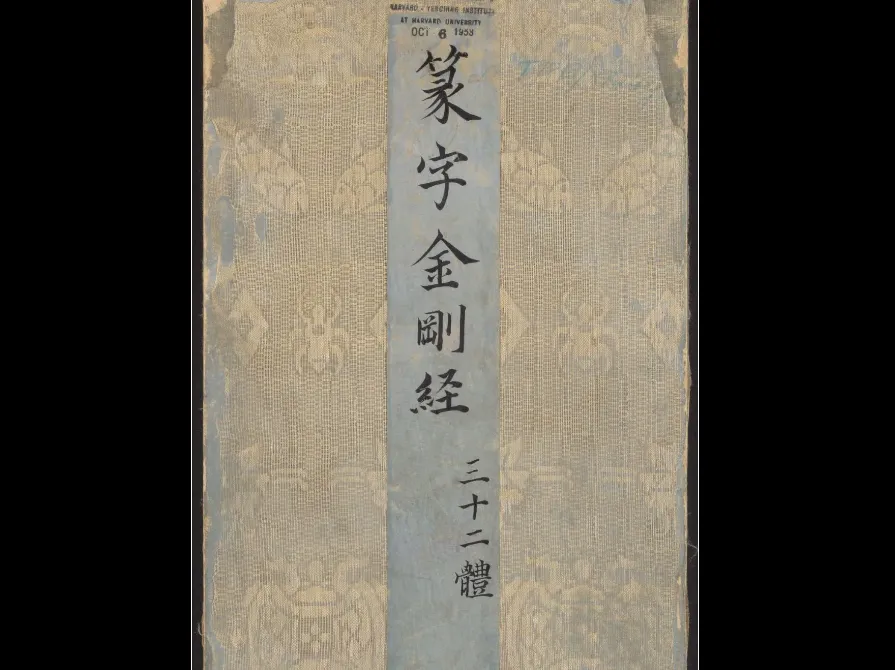 HARVARD - YENCHING INSTITUTE
AT HARVARD UNIVERSITY
OCT 6 1953
篆字金剛経
三十二體